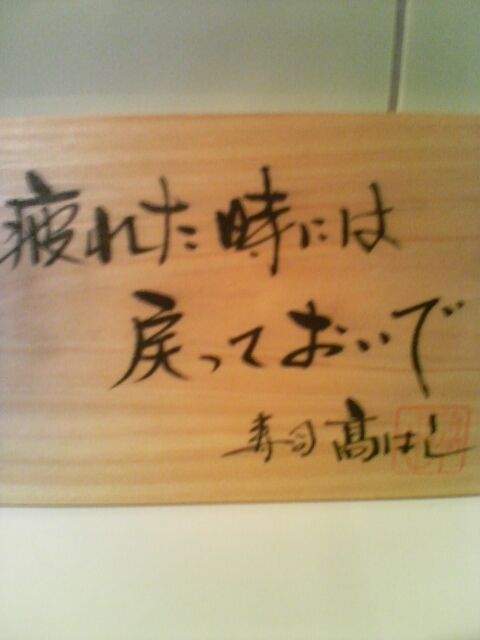 疲れた時には
戻っておいで
寿司 髙はし